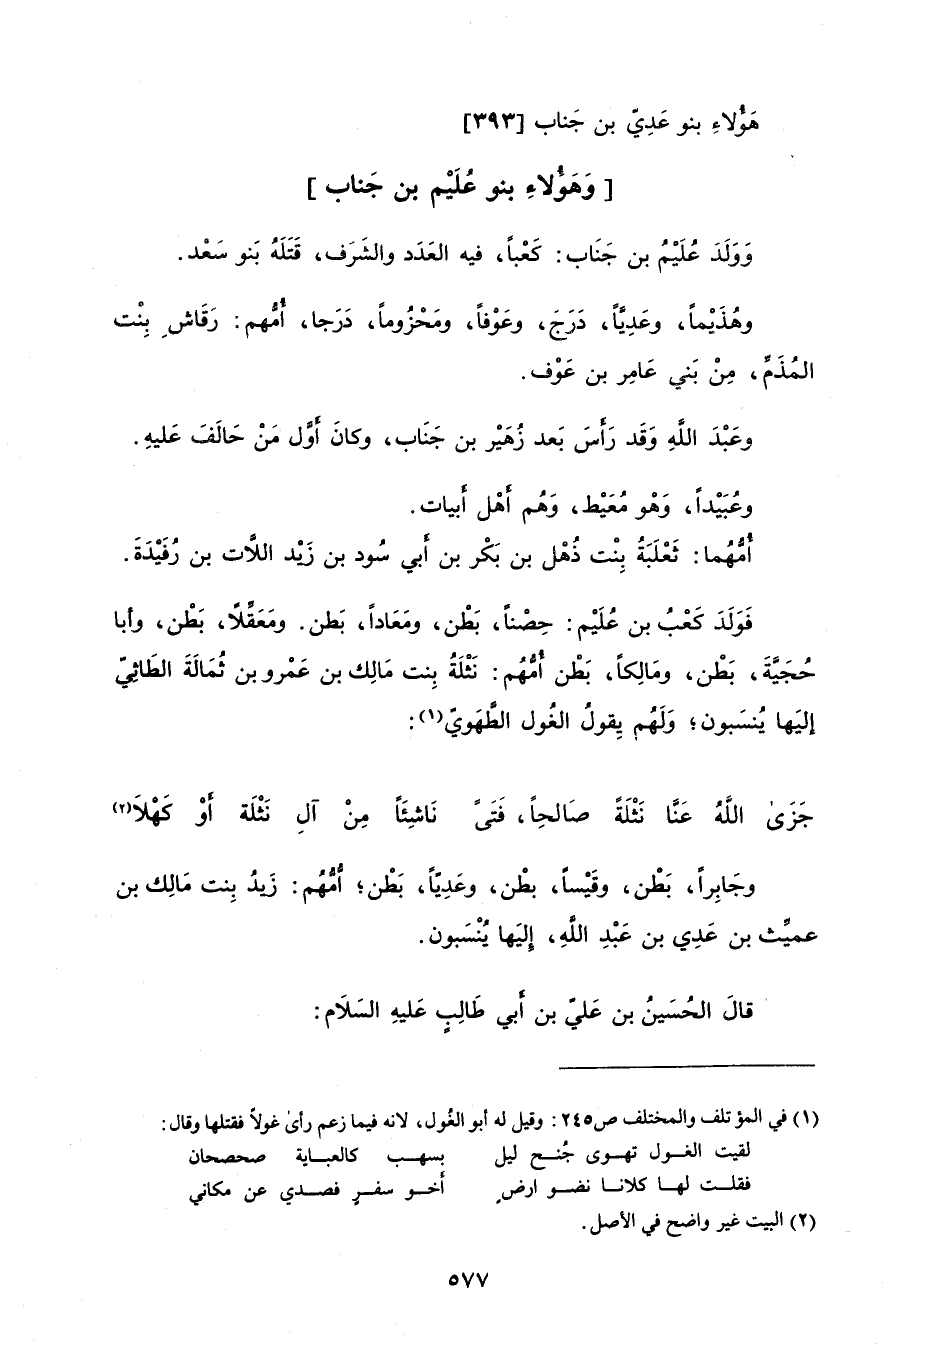 هَؤُلاءِ بنو عَدِيّ بن جَناب [٣٩٣]
[ وَهَؤُلاءِ بنو عُلَيْم بن جَناب ]
وَوَلَدَ عُلَيْمُ بن جَنَاب: كَعْباً، فيه العَدَد والشَرَف، قَتَلَهُ بَنو سَعْد.
وهُذَيْماً، وعَدِيَّاً، دَرَجَ، وعَوْفاً، ومَخْزُوماً، دَرَجا، أُمُّهم: رَقَاشِ بِنْت
المُذَمِّ، مِنْ بَني عَامِر بن عَوْف.
وعَبْدَ اللَّهِ وَقَد رَأَسَ بَعد زُهَيْر بن جَنَاب، وكانَ أَوَّل مَنْ حَالَفَ عَليهِ.
وعُبَيْداً، وَهْو مُعَيْط، وَهُم أَهْل أَبيات.
أُمُّهُما: ثَعْلَبَةُ بِنْت ذُهْل بن بَكْر بن أَبي سُود بن زَيْد اللَّات بن رُفَيْدَةَ.
فَوَلَدَ كَعْبُ بن عُلَيْم: حِصْناً، بَطْن، ومَعَاداً، بَطن. ومَعَقِّلاً، بَطْن، وأبا
حُجَيَّةَ، بَطْن، ومَالِكاً، بَطْن أُمُّهُم: نَثْلَةُ بِنت مَالِك بن عَمْرو بن ثُمَالَةَ الطَائِيّ
إليَها يُنسَبون؛ وَلَهُم يِقولُ الغُول الطَّهَويّ(١):
جَزَىٰ اللَّهُ عَنَّا نَثْلَةً صَالحِاً، فَتَىً نَاشِئَاً مِنْ آلِ نَثْلَة أَوْ كَهْلَا(٢)
وجَابِراً، بَطْن، وقَيْساً، بطْن، وعَدِيّاً، بَطْن؛ أُمُّهُم: زَيدُ بِنت مَالِك بن
عميِّث بن عَدِي بن عَبْدِ اللَّهِ، إِليَها يُنْسَبون.
قالَ الحُسَينُ بن عَليّ بن أَبي طَالِبٍ عَليهِ السَلَام:
(١) في المؤتلف والمختلف ص٢٤٥: وقيل له أبو الغُول، لانه فيما زعم رأىٰ غولاً فقتلها وقال:
لقيت الغول تهوى جُنح ليل بسهب كالعباية صحصحان
فقلت لها كلانا نضو ارضٍ أخو سفرٍ فصدي عن مكاني
(٢) البيت غير واضح في الأصل.
٥٧٧